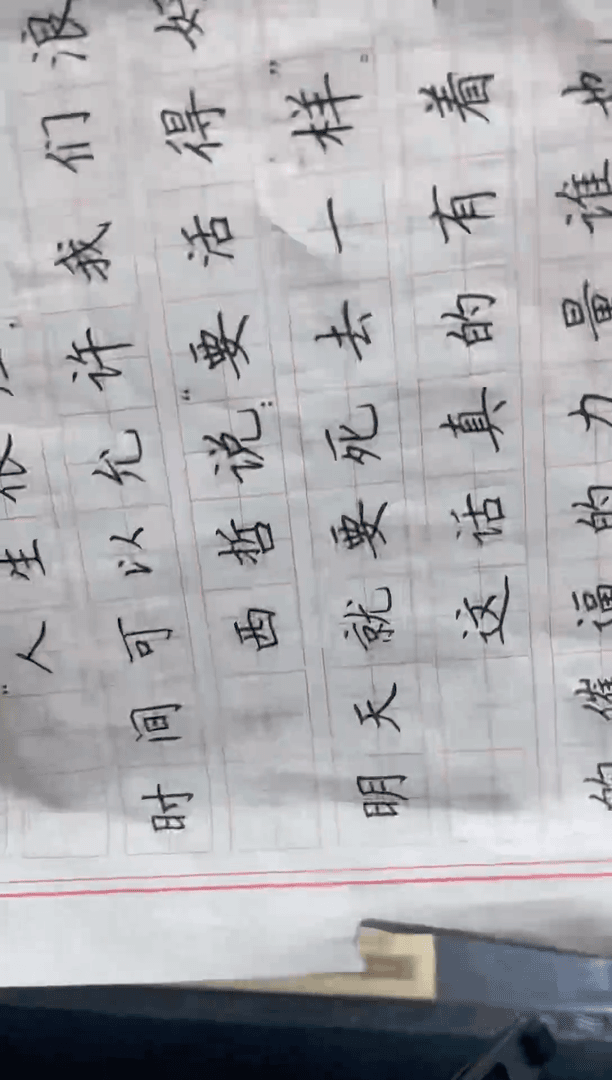 "人生很
时间可以允许我们浪
西哲说:"要活得好
明天就要死去一样"。
这话真的有着
的催逼的力量谁也